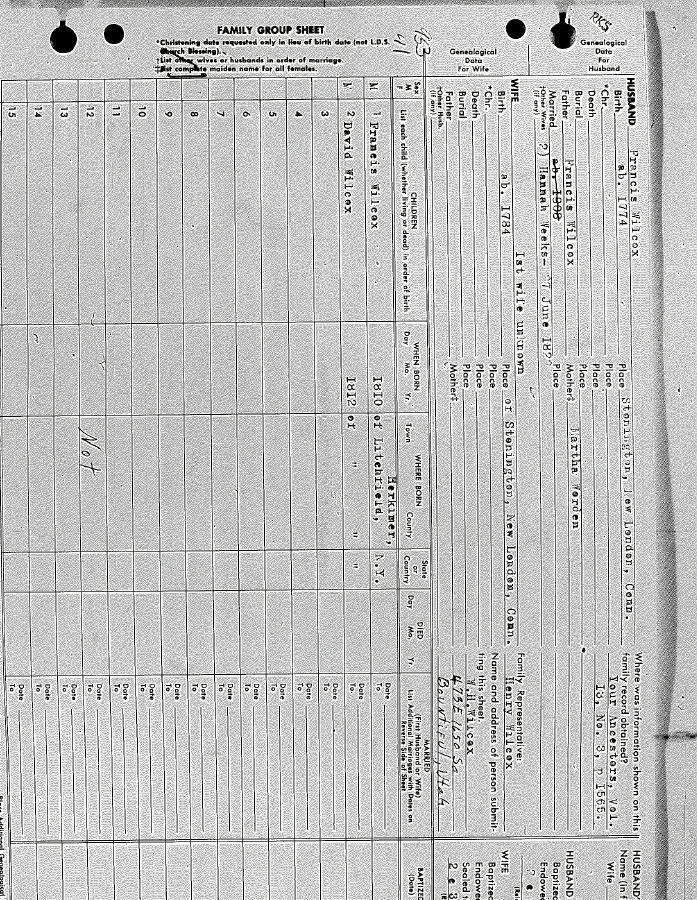 FAMILY GROUP SHEET
*Christening date requested only in lieu of birth date (not L.D.S.
Church Blessing).
†List other wives or husbands in order of marriage.
‡List complete maiden name for all females.
Genealogical
Data
For Wife
Genealogical
Data
For
Husband
HUSBAND Francis Wilcox
Birth ab. 1774 Place Stonington, New London, Conn.
*Chr. Place
Death Place
Burial Place
Father Francis Wilcox Mother‡ Martha Worden
Married ab. 1808 Place
†Other Wives 2) Hannah Weeks- 27 June
(if any)
WIFE 1st wife unknown
Birth ab. 1784 Place of Stonington, New London, Conn.
*Chr. Place
Death Place
Burial Place
Father Mother‡
†Other Husb.
(if any)
Where was information shown on this
family record obtained?
Your Ancestors, Vol.
13, No. 3, p 1566.
Family Representative:
Henry Wilcox
Name and address of person submit-
ting this sheet.
W.H. Wilcox
473 E 1650 So
Bountiful, Utah
Sex
M
F
CHILDREN
List each child (whether living or dead) in order of birth
WHEN BORN
Day Mo. Yr.
WHERE BORN
Town County
State
or
Country
DIED
Day Mo. Yr.
MARRIED
(First Husband or Wife)
List Additional Marriages with Dates on
Reverse Side of Sheet
BAPTIZED
(Date)
Herkimer,
M 1 Francis Wilcox 1810 of Litchfield, N.Y.
Date
To
M 2 David Wilcox 1812 of " " "
Date
To
3
Date
To
4
Date
To
5
Date
To
6
Date
To
7
Date
To
8
Date
To
9
Date
To
10
Date
To
11
Date
To
12 Not
Date
To
13
Date
To
14
Date
To
15
Date
To
HUSBAND
Name (in f
Wife
HUSBAND
Baptized
Endowed
WIFE
Baptized
Endowed
Sealed